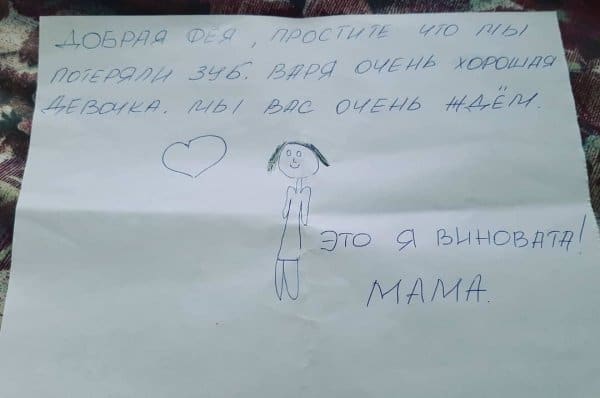 ДОБРАЯ ФЕЯ, ПРОСТИТЕ ЧТО МЫ
ПОТЕРЯЛИ ЗУБ. ВАРЯ ОЧЕНЬ ХОРОШАЯ
ДЕВОЧКА. МЫ ВАС ОЧЕНЬ ЖДЁМ.
ЭТО Я ВИНОВАТА!
МАМА.